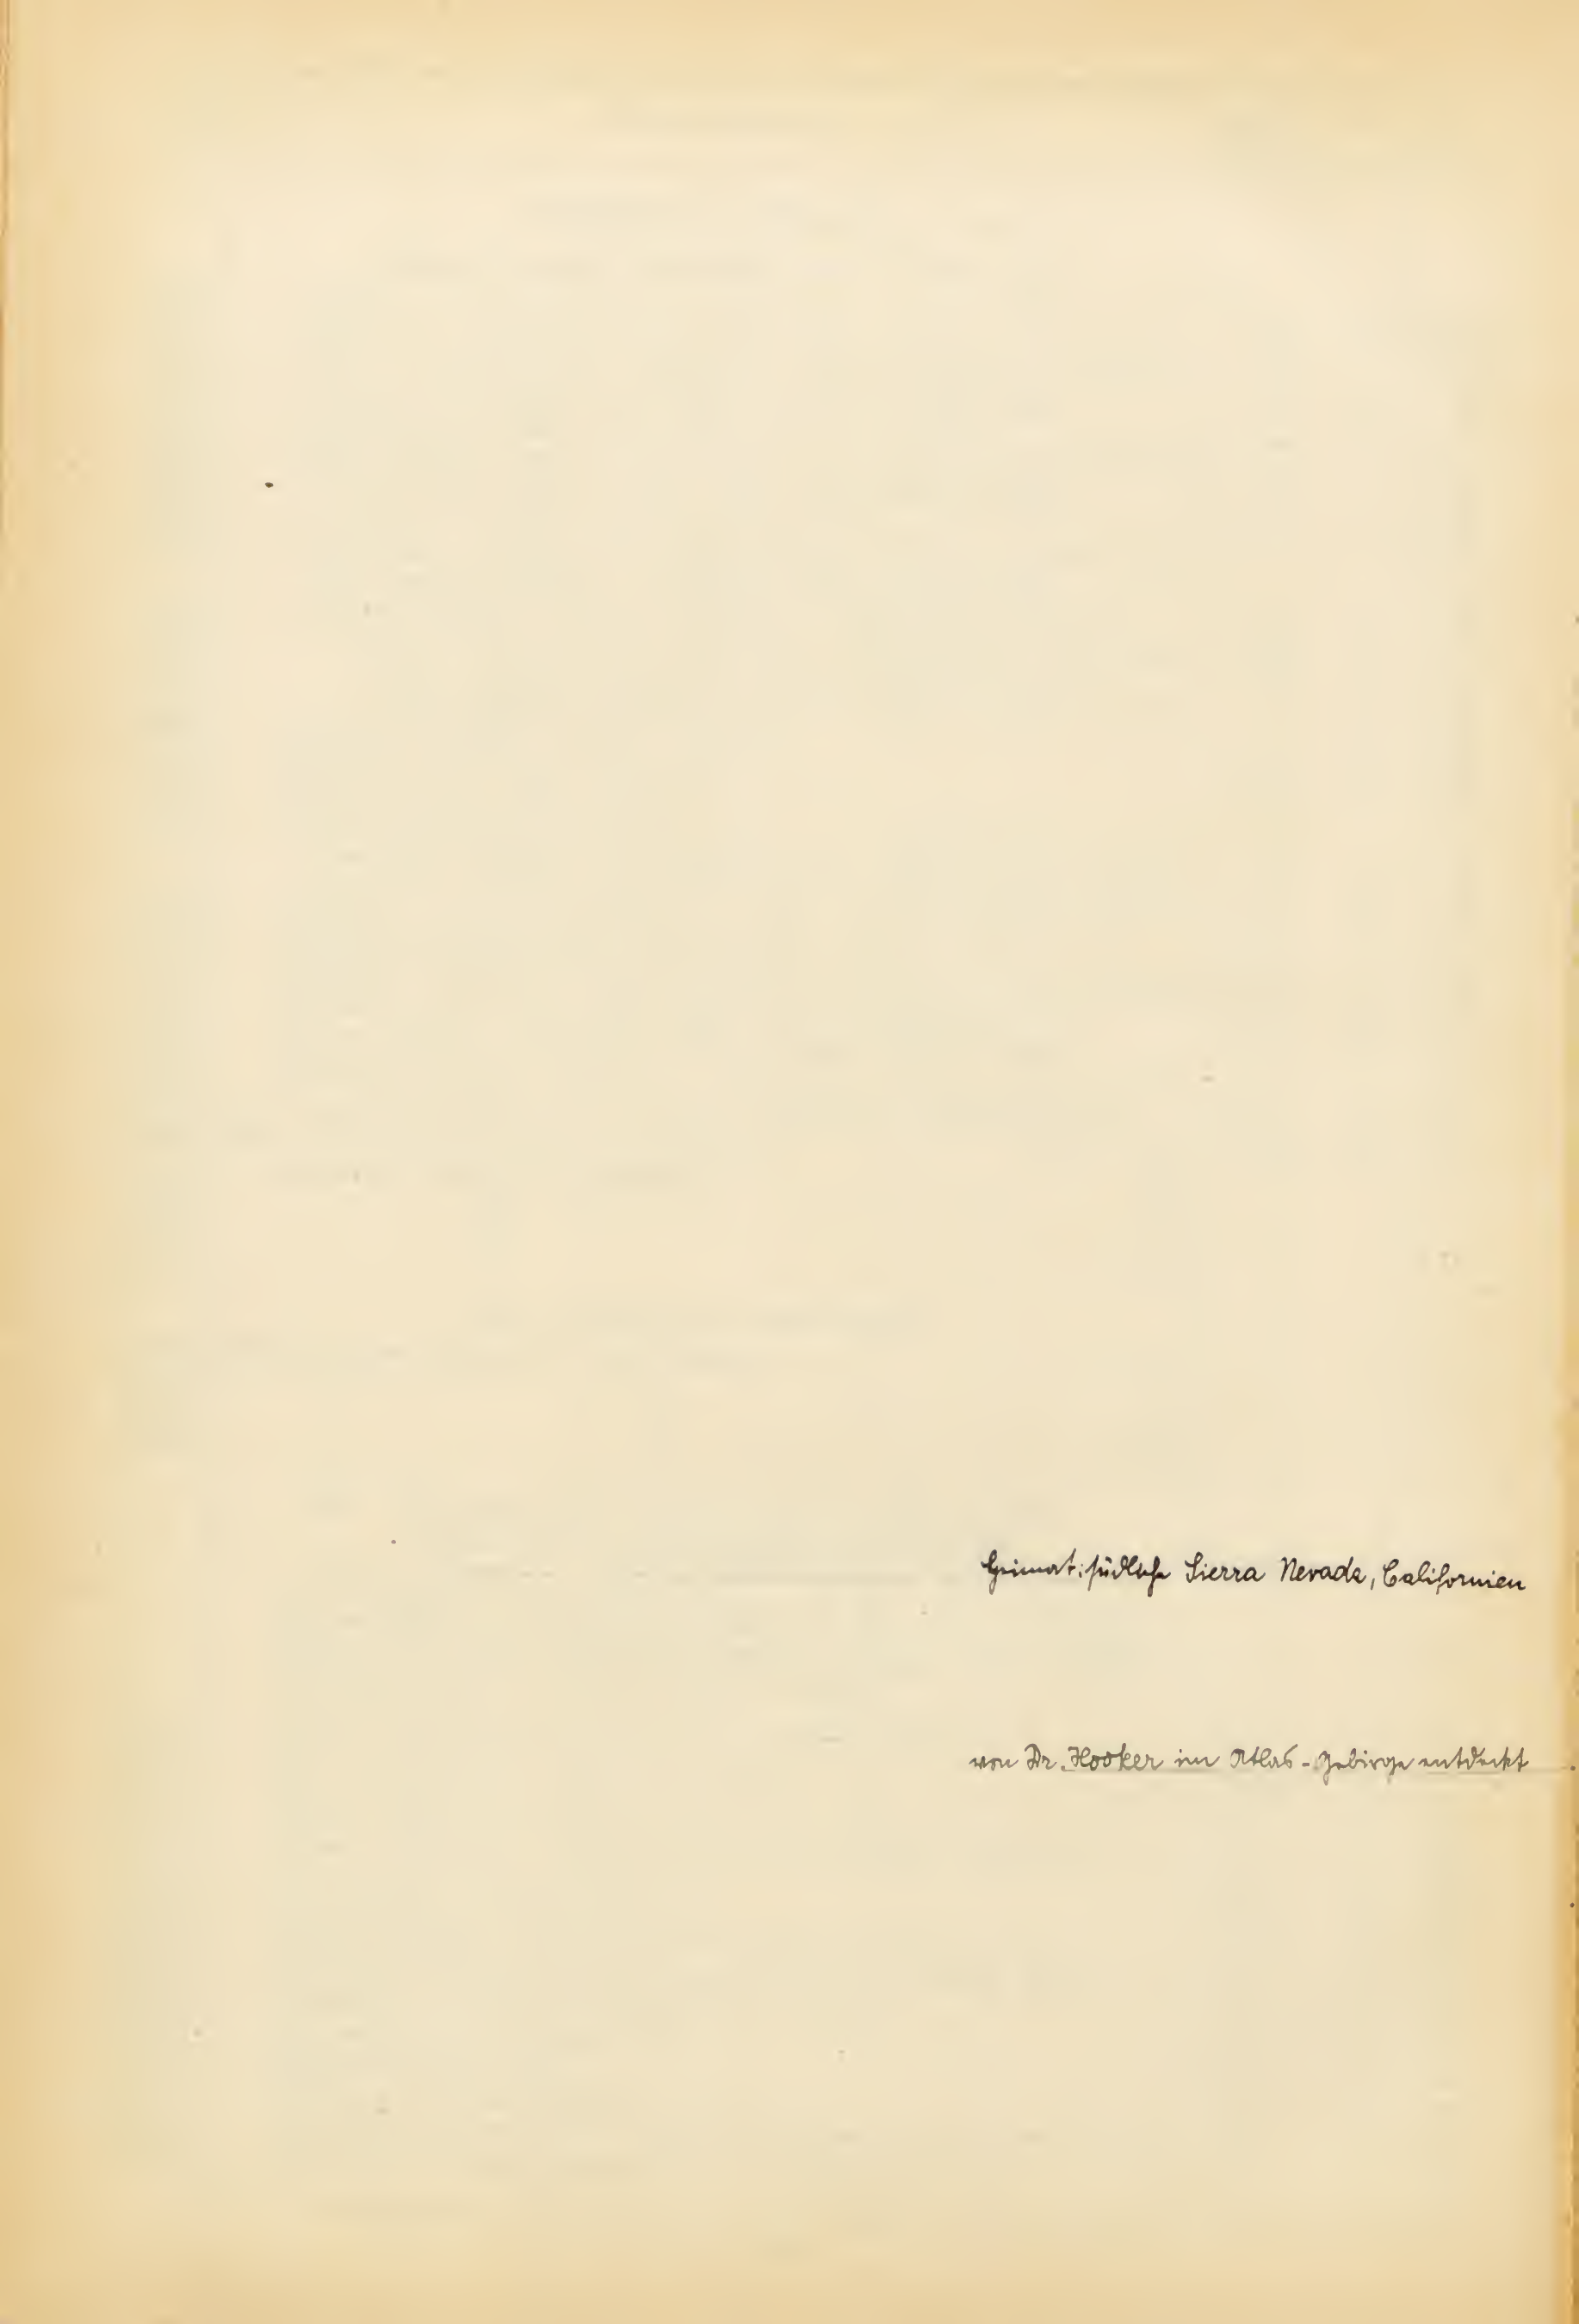 Heimat: südliche Sierra Nevada, Californien
von Dr. Hooker im Atlas-Gebirge entdeckt